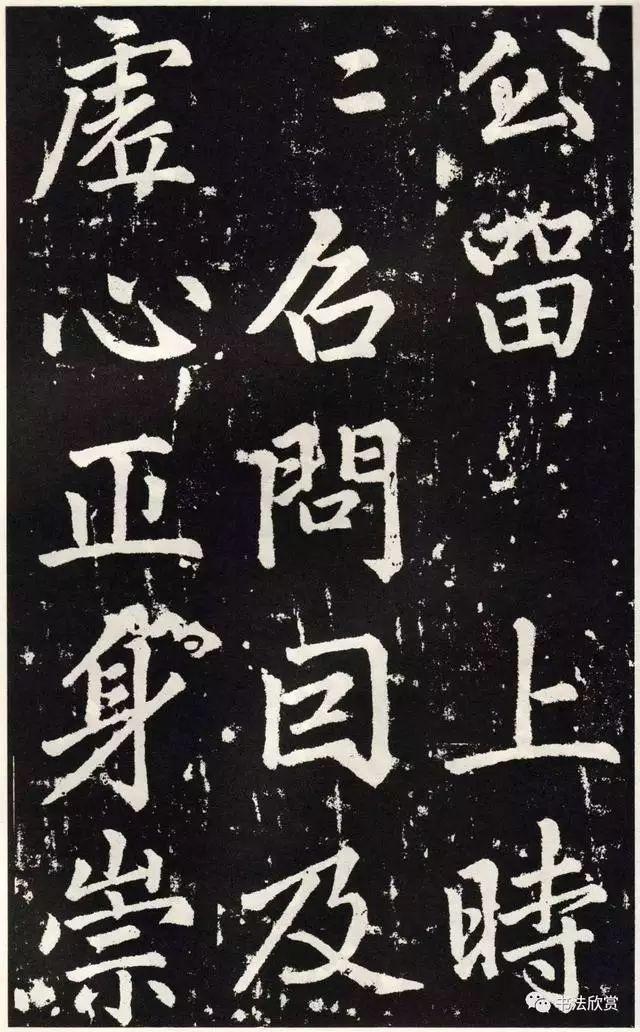 公留　上時
〻召問囙及
虚心正身崇
书法欣赏